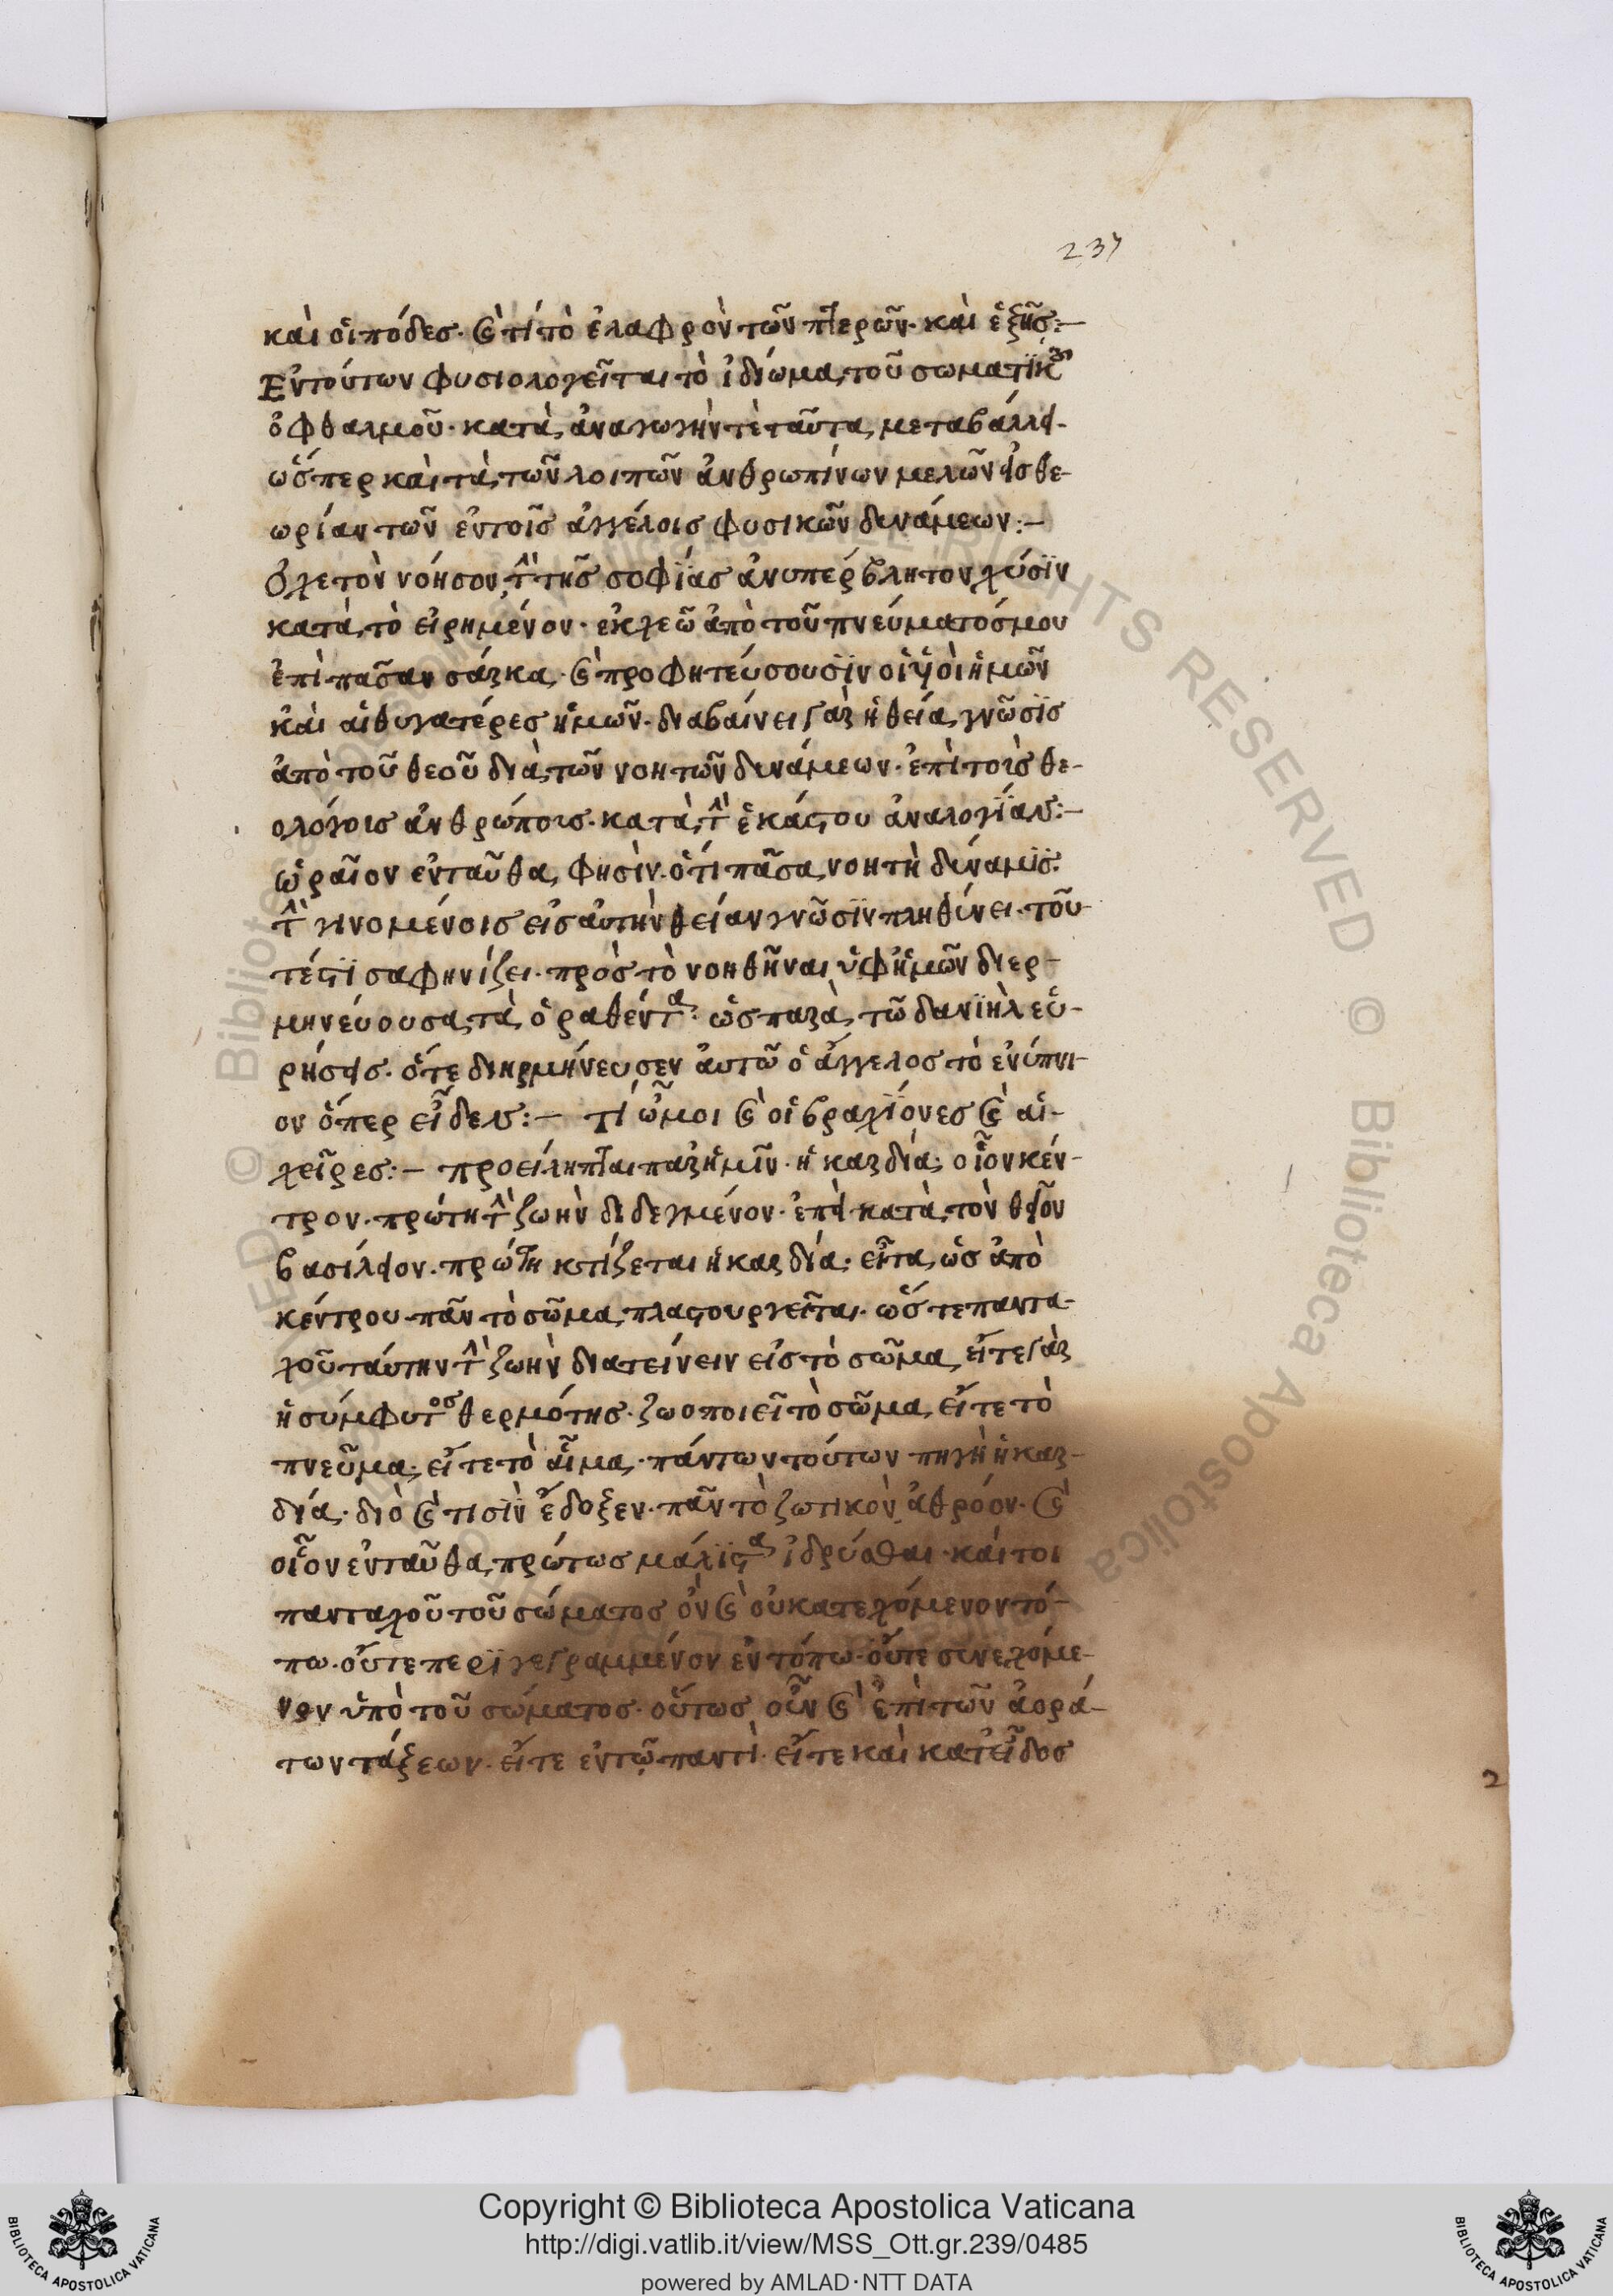 237
καὶ οἱ πόδες· καὶ τί τὸ ἐλαφρὸν τῶν πτερῶν· καὶ ἑξῆς:—
Ἐν τούτων φυσιολογεῖται τὸ ἰδίωμα τοῦ σωματϊκοῦ
ὀφθαλμοῦ· κατὰ ἀναγωγήν τὲ ταῦτα μεταβάλλει-
ὥσπερ καὶ τὰ τῶν λοιπῶν ἀνθρωπίνων μελῶν εἰς θε-
ωρίαν τῶν ἐν τοῖς ἀγγέλοις φυσικῶν δυνάμεων:—
Ὀχετὸν νόησον, τὴν τῆς σοφΐας ἀνυπέρβλητον χύσϊν
κατὰ τὸ εἰρημένον· ἐκχεῶ ἀπὸ τοῦ πνεύματός μου
ἐπὶ πᾶσαν σάρκα· καὶ προφητεύσουσϊν οἱ ϋἱοὶ ἡμῶν
καὶ αἱ θυγατέρες ἡμῶν· διαβαίνει γὰρ ἡ θεία γνῶσϊς
ἀπὸ τοῦ θεοῦ διὰ τῶν νοητῶν δυνάμεων· ἐπὶ τοῖς θε-
ολόγοις ἀνθρώποις· κατὰ τὴν ἑκάστου ἀναλογΐαν:—
ὡραῖον ἐνταῦθα φησὶν· ὅτι πᾶσα νοητὴ δύναμϊς·
τὴν γινομένοις εἰς αὐτὴν θείαν γνῶσϊν πληθύνει· τοῦ-
τέστϊ σαφηνίζει· πρὸς τὸ νοηθῆναι ὑφ' ἡμῶν διερ-
μηνεύουσα τὰ ὁραθέντα· ὡς παρὰ τῶ δανϊὴλ εὑ-
ρήσεις· ὅτε διηρμήνευσεν αὐτῶ ὁ ἄγγελος τὸ ἐνύπνι-
ον ὅπερ εἶδεν:— τί ὦμοι καὶ οἱ βραχΐονες καὶ αἱ-
χεῖρες:— προείληπται παρ' ἡμῖν· ἡ καρδία· οἷον κέν-
τρον· πρώτη τὴν ζωὴν δεδεγμένον· ἐπεὶ κατὰ τὸν θεῖον
βασίλειον· πρώτη κτίζεται ἡ καρδία· εἶτα ὡς ἀπὸ
κέντρου πᾶν τὸ σῶμα πλαστουργεῖται· ὥστε παντα-
χοῦ ταύτην τὴν ζωὴν διατείνειν εἰς τὸ σῶμα, εἴτε γὰρ
ἡ σύμφυτος θερμότης· ζωοποιεῖ τὸ σῶμα, εἴτε τὸ
πνεῦμα· εἴτε τὸ αἷμα· πάντων τούτων πηγὴ ἡ καρ-
δία· διὸ καὶ τισὶν ἔδοξεν· πᾶν τὸ ζωτικὸν ἀθρόον· καὶ
οἷον ἐνταῦθα πρώτως μάλϊστα ἱδρύσθαι· καίτοι
πανταχοῦ τοῦ σώματος ὂν καὶ οὐ κατεχόμενον τό-
πω· οὔτε περϊγεγραμμένον ἐν τόπω· οὔτε συνεχόμε-
νον ὑπὸ τοῦ σώματος· οὕτως οὖν καὶ ἐπὶ τῶν ἀορά-
των τάξεων· εἴτε ἐν τῷ παντὶ· εἴτε καὶ κατ' εἶδος
2
Copyright © Biblioteca Apostolica Vaticana
http://digi.vatlib.it/view/MSS_Ott.gr.239/0485
powered by AMLAD·NTT DATA
BIBLIOTECA APOSTOLICA VATICANA
BIBLIOTECA APOSTOLICA VATICANA